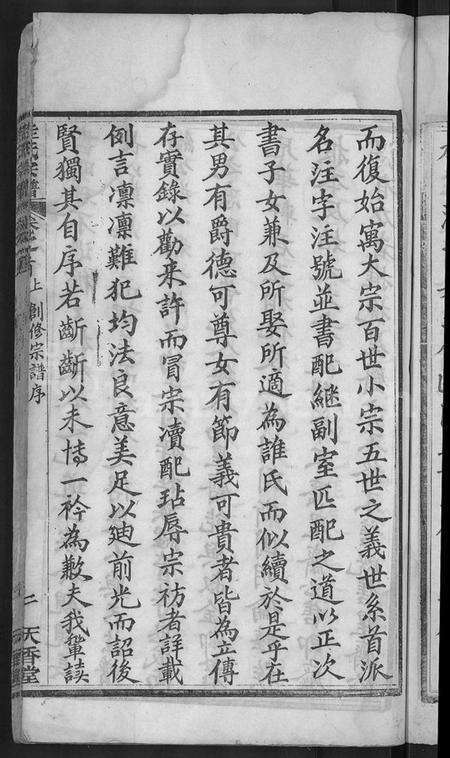 而復始寓大宗百世小宗五世之義世系首派
名注字注號並書配繼副室匹配之道以正次
書子女兼及所娶所適為誰氏而似續於是乎在
其男有爵德可尊女有節義可貴者皆為立傳
存實錄以勸來許而冒宗瀆配玷辱宗祊者詳載
例言凜凜難犯均法良意美足以廸前光而詔後
賢獨其自序若斷斷以未慱一衿為歉夫我輩談
氏宗譜
上創修宗譜序
二天香堂